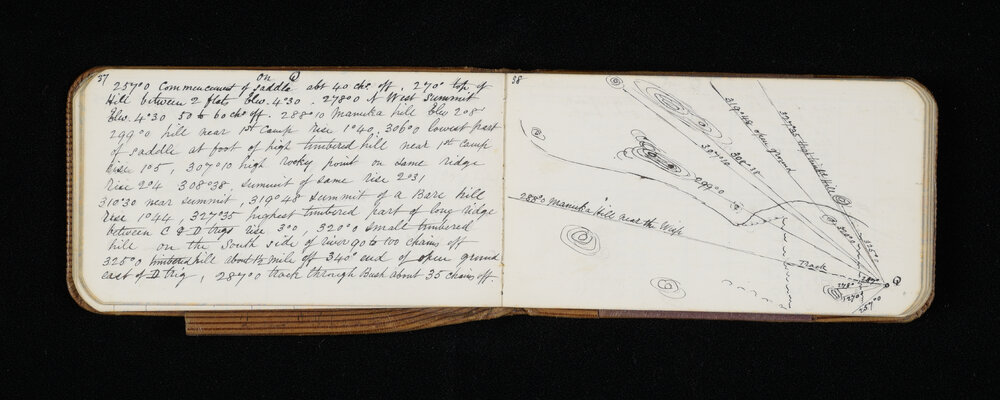 37
on Q
257°0 Commencement of saddle abt 40 chs off. 270° top of
Hill between 2 flats Elev. 4°30. 278°0 N West Summit
Elev. 4°30 50 to 60 chs off. 288°10 Manuka hill Elev 2°8
299°0 hill near 1st Camp rise 1°40, 306°0 lowest part
of saddle at foot of high timbered hill near 1st camp
Rise 1°5, 307°10 high rocky point on same ridge
rise 2°4 308°38, summit of same rise 2°31
310°30 near summit, 319°48 summit of a Bare hill
rise 1°44, 327°35 highest timbered part of long ridge
between C & D trigs rise 3°0, 320°0 small timbered
hill on the South side of river 90 to 100 chains off
325°0 timbered hill about ½ mile off 340° end of open ground
east of D trig, 287°0 track through Bush about 35 chains off.
38
319°48 open ground
327°35 timbered hill
308°38
307°10
299°0
288°0 Manuka Hill near the Wisp
320°0
325°0
Track
287°
278°
270°
257°0
Q